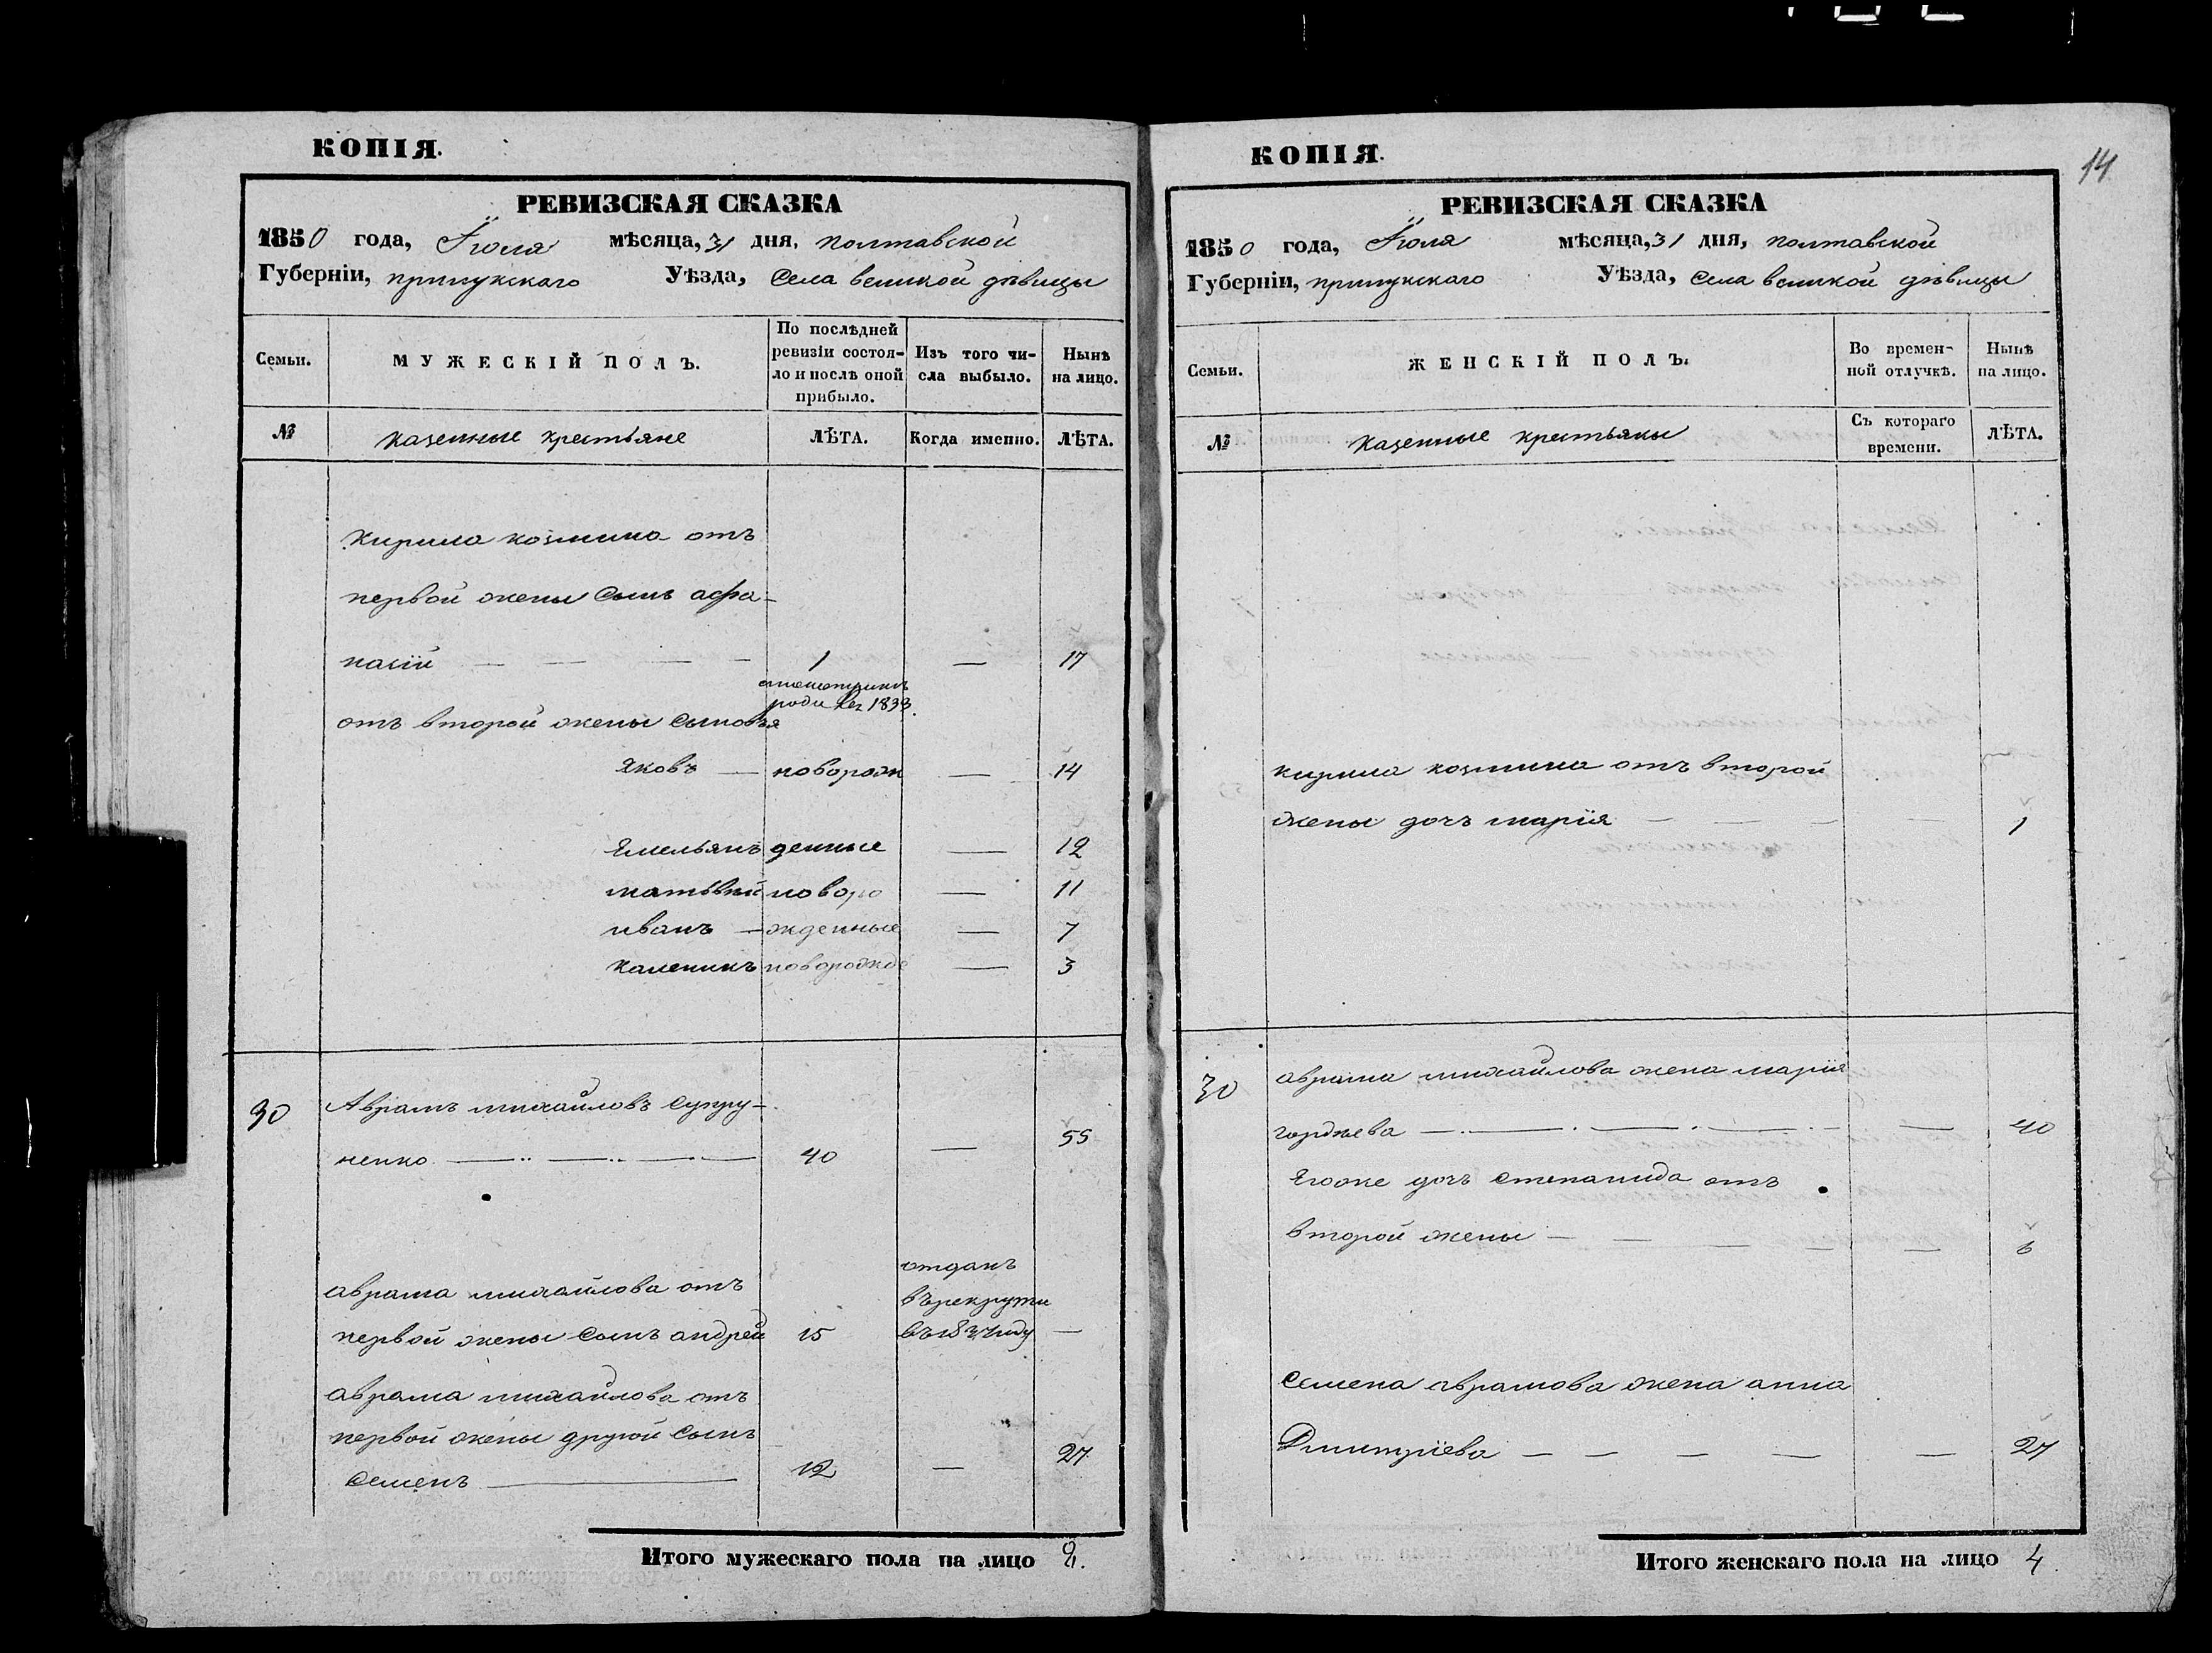 КОПІЯ.
РЕВИЗСКАЯ СКАЗКА
1850 года, Іюля мѣсяца, 31 дня, полтавской
Губерніи, прилукского Уѣзда, села великой дѣвицы
Семьи.
МУЖЕСКІЙ ПОЛЪ.
По послѣдней
ревизіи состоя-
ло и послѣ оной
прибыло.
Изъ того чи-
сла выбыло.
Нынѣ
на лицо.
№
казенные крестьяне
ЛѢТА.
Когда именно.
ЛѢТА.
кирила козмина отъ
первой жены сынъ афа-
насій — — — — 1 — 17
роди 1833.
отъ второй жены сыновья
яковъ — новорож — 14
Емельянъ денные — 12
матвѣй новоро — 11
иванъ — жденные — 7
каленикъ новорожде — 3
30 Аврамъ михайловъ супру-
ненко 40 — 55
аврама михайлова отъ
первой жены сынъ андрей 15
отданъ
въ рекруты
въ 1834 году —
аврама михайлова отъ
первой жены другой сынъ
семенъ 12 — 27
Итого мужескаго пола на лицо
КОПІЯ.
14
РЕВИЗСКАЯ СКАЗКА
1850 года, Іюля мѣсяца, 31 дня, полтавской
Губерніи, прилукского Уѣзда, села великой дѣвицы
Семьи.
ЖЕНСКІЙ ПОЛЪ.
Во времен-
ной отлучкѣ.
Нынѣ
на лицо.
№
казенные крестьяны
Съ котораго
времени.
ЛѢТА.
кирила козмина отъ второй
жены дочъ марія — — — — 1
30 аврама михайлова жена марія
гордѣева — 40
Егоже дочъ степанида отъ
второй жены — — — — — 6
семена аврамова жена анна
Дмитріева — — — — — 27
Итого женскаго пола на лицо 4